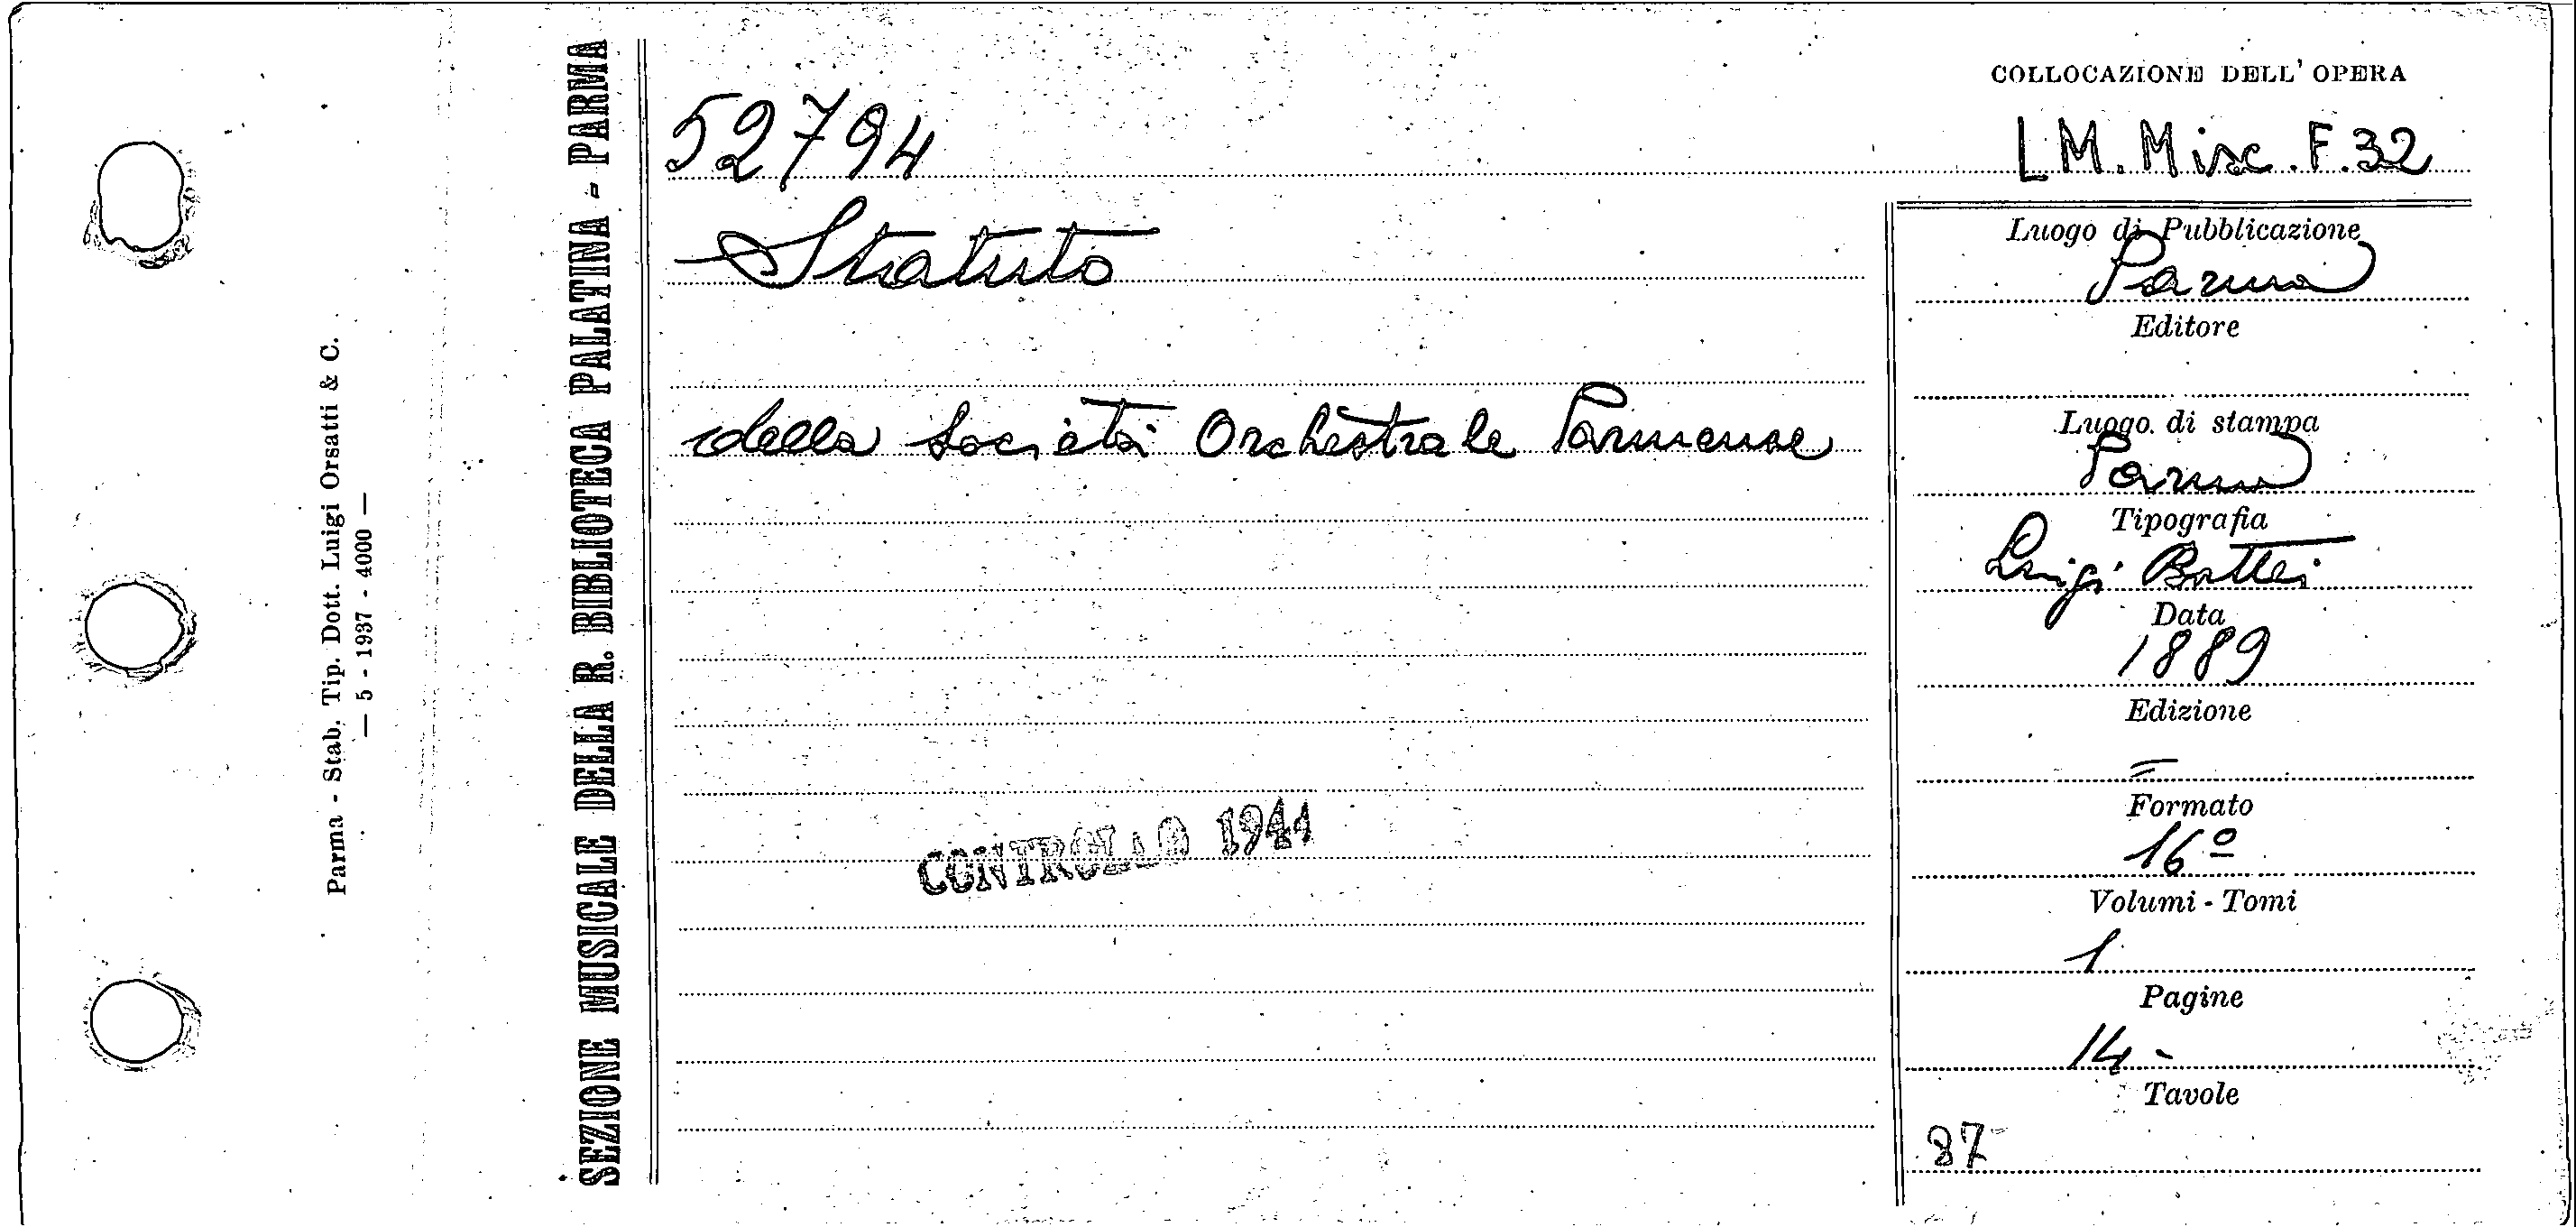 Parma - Stab. Tip. Dott. Luigi Orsatti & C.
— 5 - 1937 - 4000 —
SEZIONE MUSICALE DELLA R. BIBLIOTECA PALATINA - PARMA
52794
Statuto
della Società Orchestrale Parmense
CONTROLLO 1941
COLLOCAZIONE DELL' OPERA
LM. Misc. F.32
Luogo di Pubblicazione
Parma
Editore
Luogo di stampa
Parma
Tipografia
Luigi Battei
Data
1889
Edizione
Formato
16º
Volumi - Tomi
1
Pagine
14 -
Tavole
87